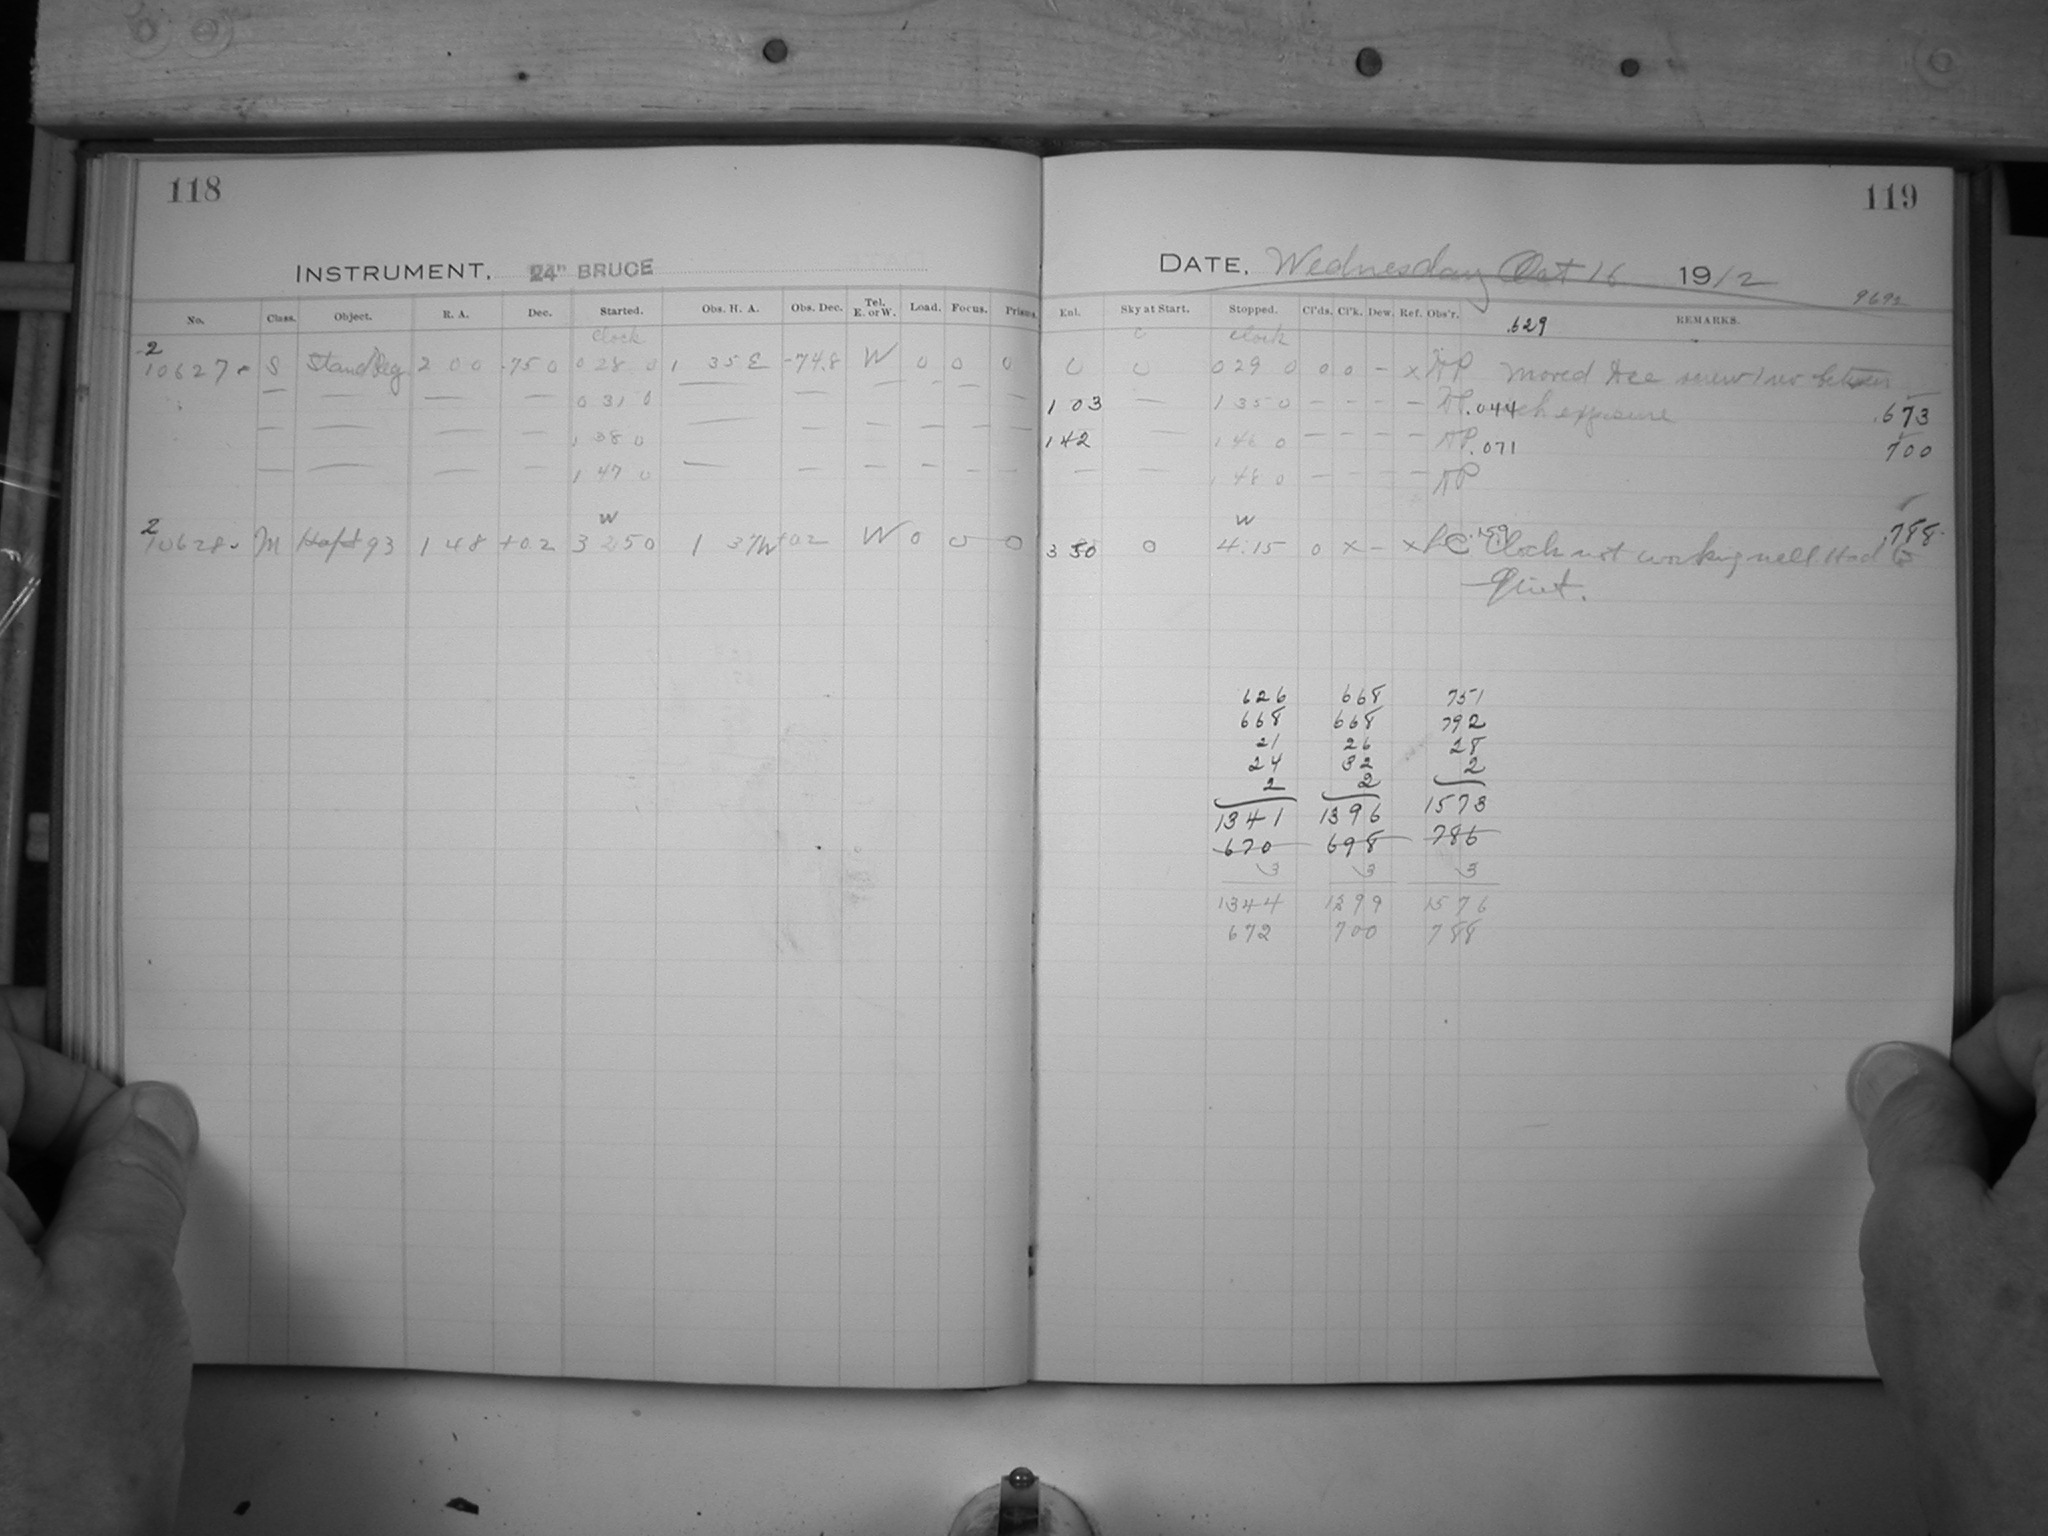 118
INSTRUMENT. 24" BRUCE
No. Class. Object. R. A. Dec. Started. Obs. H. A. Obs. Dec. Tel. E. or W. Load. Focus. Prisms.
Clock
2
10627 S Stand Reg 2 00 -75 0 0 28 0 1 35 E -74.8 W 0 0 0
— — — — 0 31 0 — — — — — —
— — — — 1 38 0 — — — — — —
— — — — 1 47 0 — — — — — —
W
2
10628 M 93 1 48 +0 2 3 25 0 1 37 W +02 W 0 0 0
119
DATE. Wednesday Oct 16 1912
9692
Enl. Sky at Start. Stopped. Cl'ds. Cl'k. Dew. Ref. Obs'r. REMARKS.
.629
0 Clock
0 0 0 29 0 0 0 — x AP Moved Dec screw 1 rev between
1 03 — 1 35 0 — — — — AP .044 each exposure .673
1 42 — 1 46 0 — — — — AP .071 700
— — 1 48 0 — — — — AP
W
3 50 0 4:15 0 x — x .159 Clock not working well Had to .788
Quit.
626 668 751
668 668 792
21 26 28
24 32 2
2 2
1341 1396 1573
670 698 786
3 3 3
1344 1399 1576
672 700 788